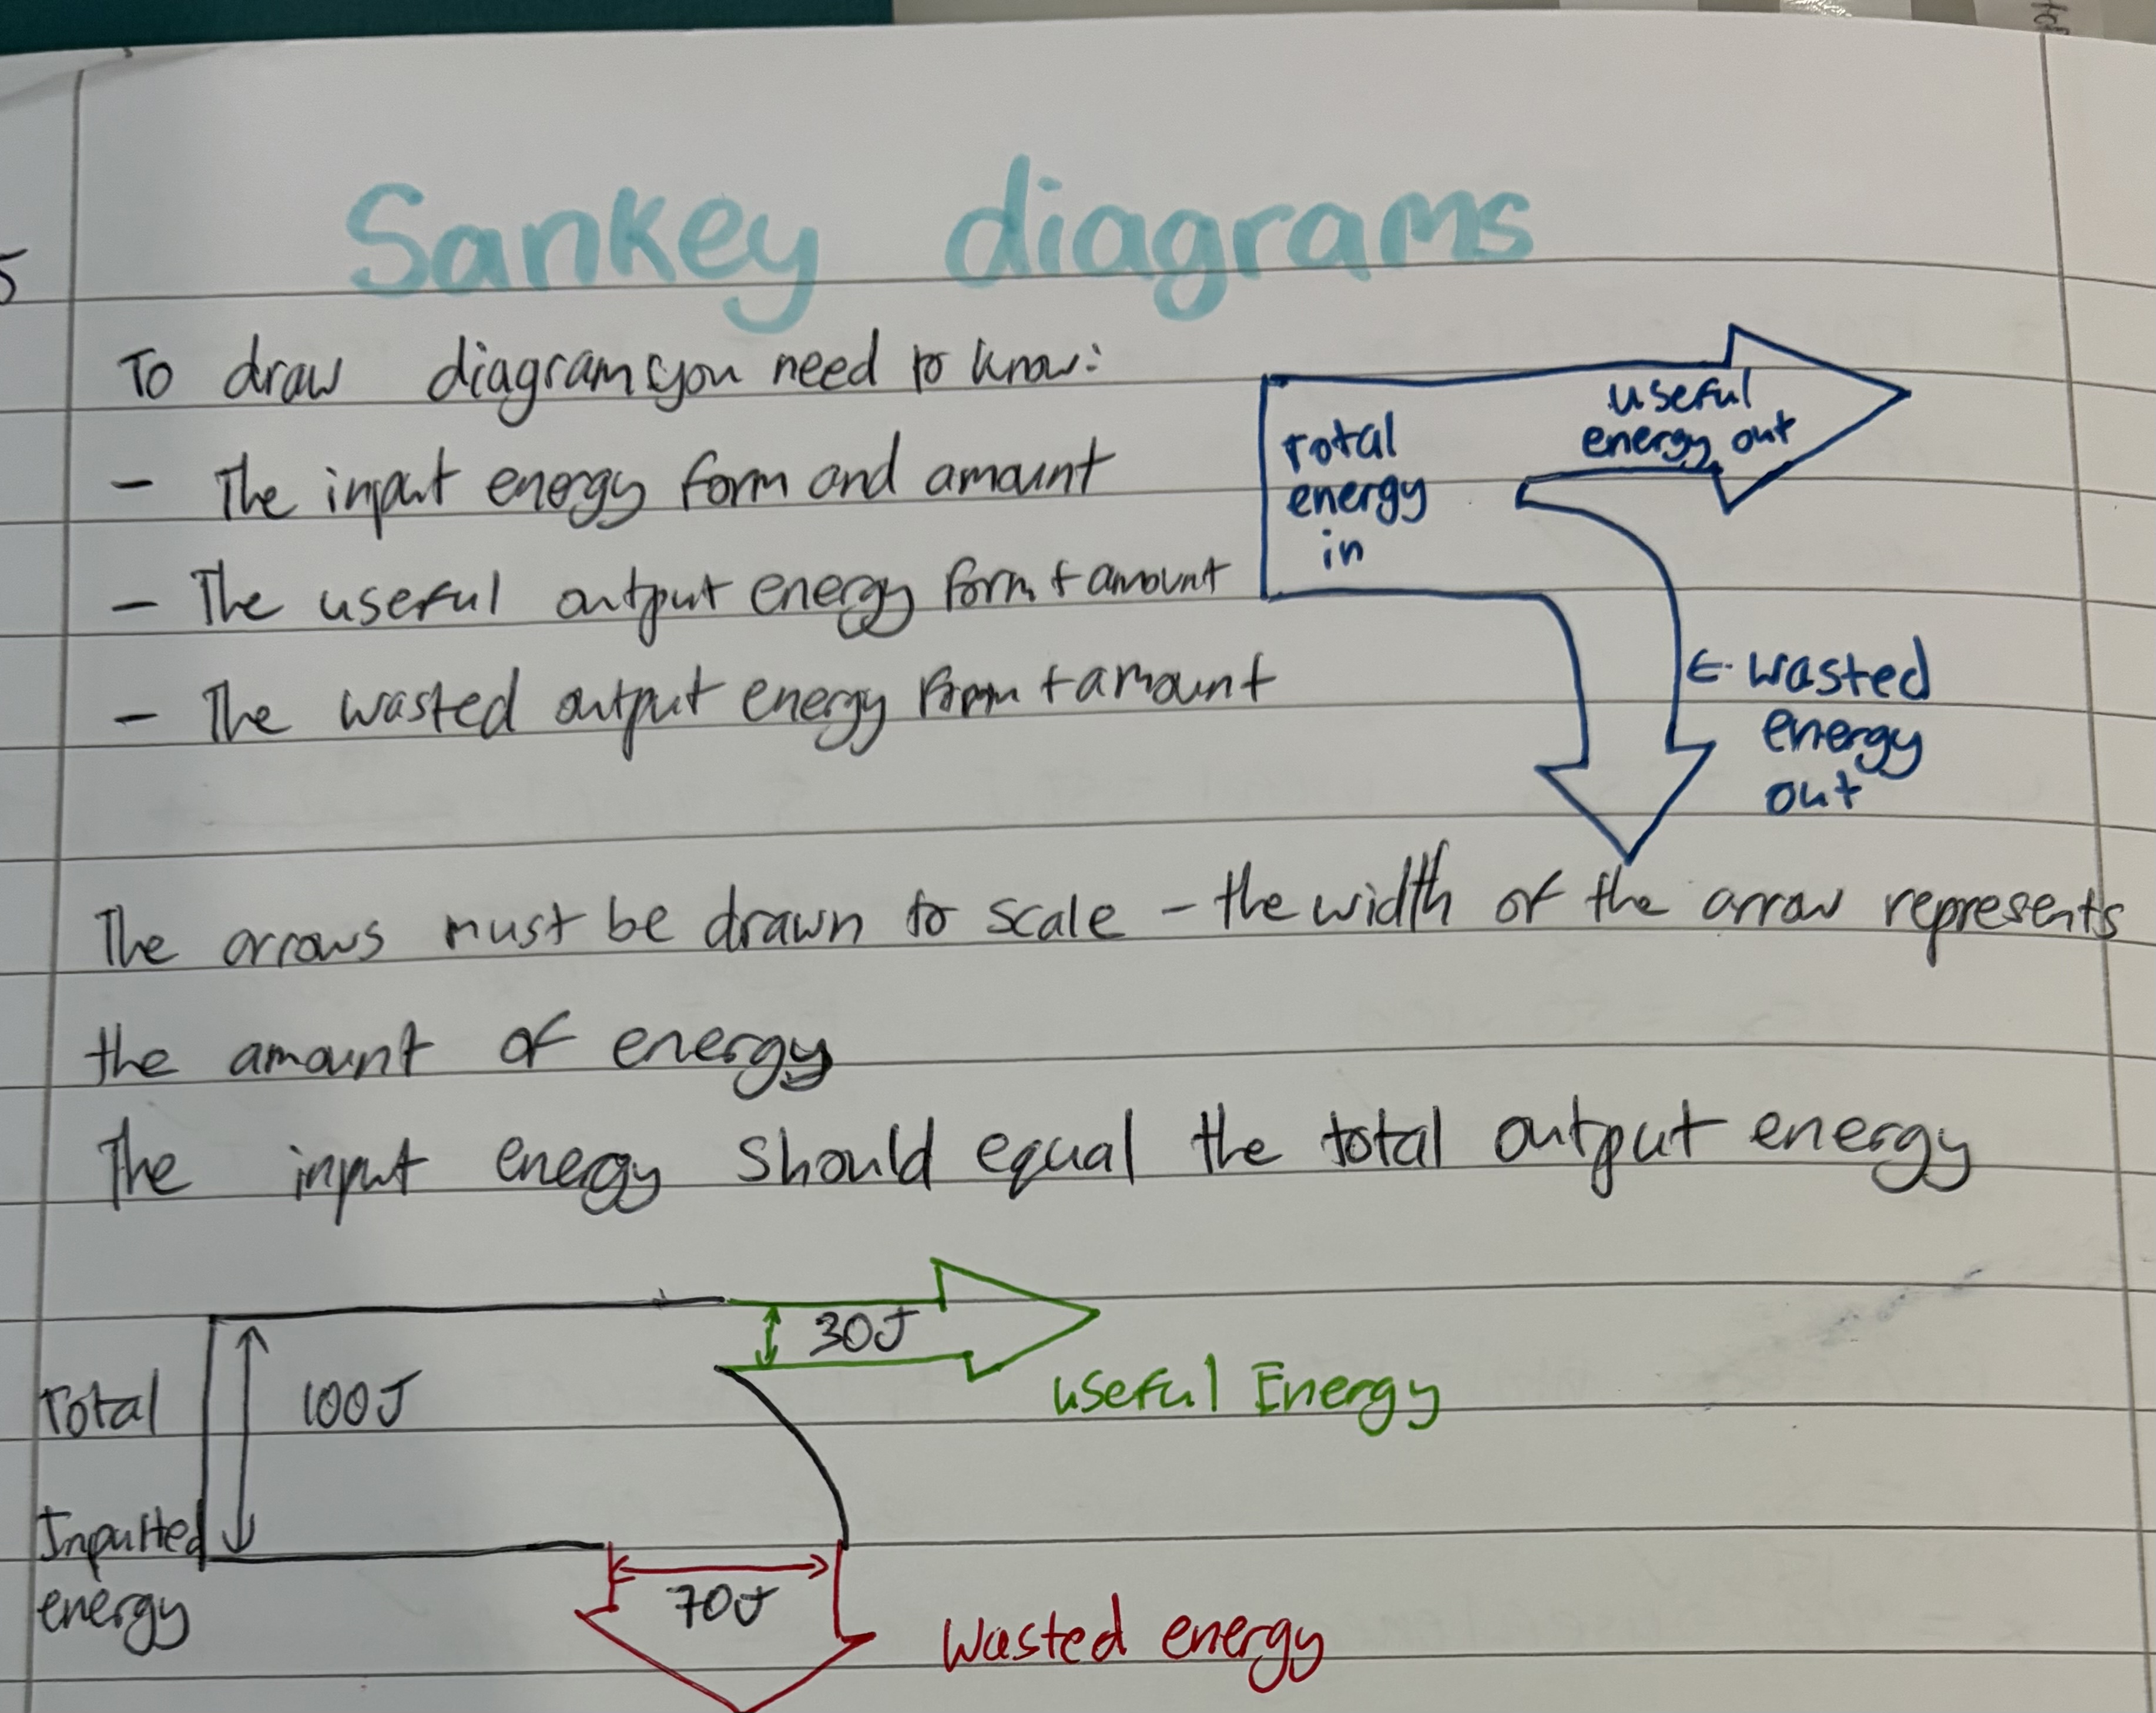 5
Sankey diagrams
To draw diagrams you need to know:
- The input energy form and amount
- The useful output energy form + amount
- The wasted output energy form + amount
Total
energy
in
useful
energy out
← wasted
energy
out
The arrows must be drawn to scale - the width of the arrow represents
the amount of energy
The input energy should equal the total output energy
Total
Inputted
energy
100J
30J
useful Energy
70J
Wasted energy